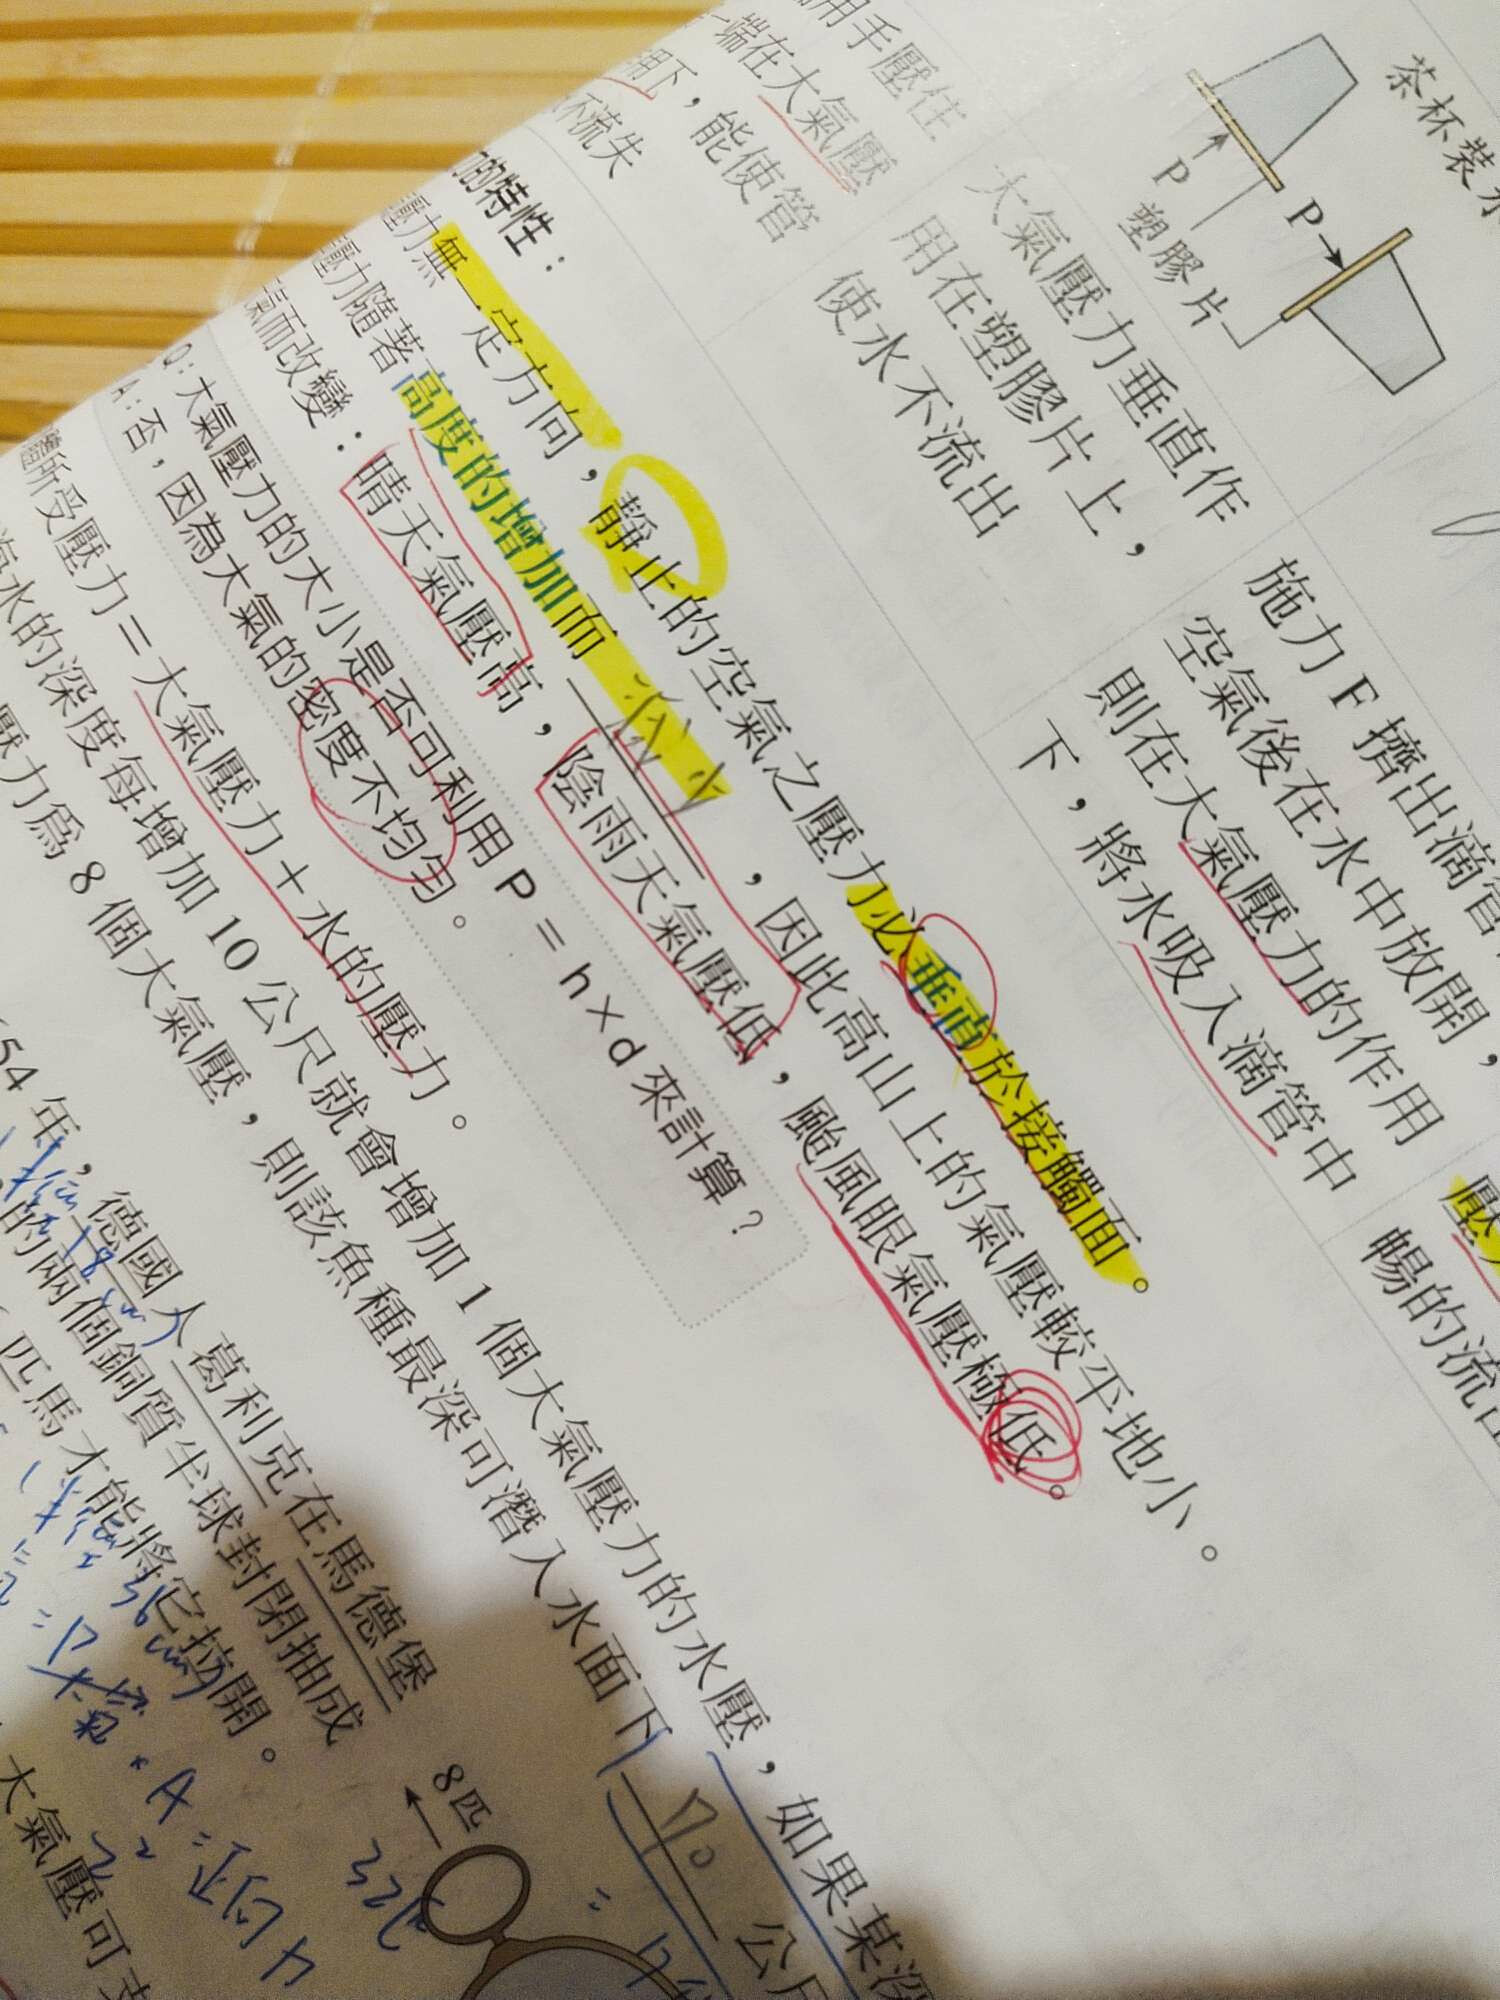 用手壓住
一端在大氣壓
用下，能使管
不流失
大氣壓力垂直作
用在塑膠片上，
使水不流出
茶杯裝水
P
塑膠片
P
施力 F 擠出滴管
空氣後在水中放開，
則在大氣壓力的作用
下，將水吸入滴管中
壓力
暢的流出
的特性：
壓力無一定方向，靜止的空氣之壓力必垂直於接觸面。
壓力隨著高度的增加而 減少 ，因此高山上的氣壓較平地小。
氣而改變：晴天氣壓高，陰雨天氣壓低，颱風眼氣壓極低。
Q：大氣壓力的大小是否可利用 P = h × d 來計算？
A：否，因為大氣的密度不均勻。
所受壓力 = 大氣壓力 + 水的壓力。
海水的深度每增加 10 公尺就會增加 1 個大氣壓力的水壓，如果某深
壓力為 8 個大氣壓，則該魚種最深可潛入水面下 70 公尺
654 年，德國人葛利克在馬德堡
的兩個銅質半球封閉抽成
匹馬才能將它拉開。
8匹
大氣壓可支